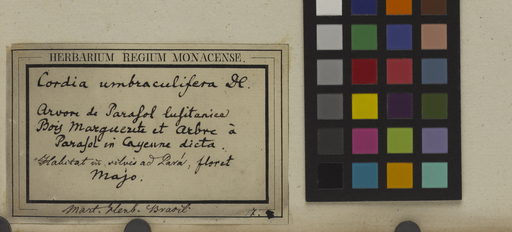 HERBARIUM REGIUM MONACENSE.
Cordia umbraculifera DC.
Arvore de Parasol lusitanice
Bois Marguerite et Arbre à
Parasol in Cayenne dicta.
Habitat in silvis ad Pará, floret
Majo.
Mart. Herb. Brasil